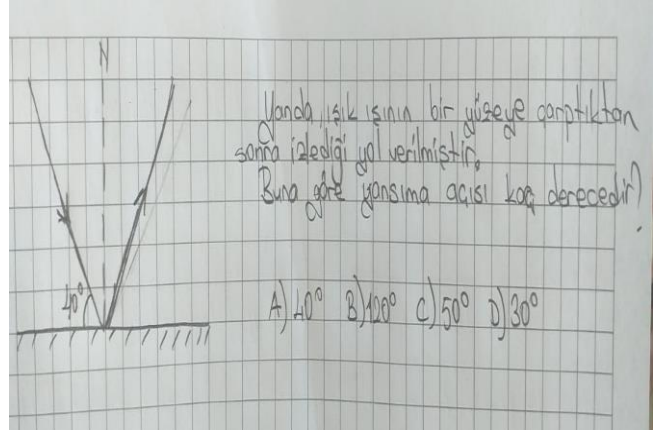 N
Yanda, ışık ışının bir yüzeye çarptıktan
sonra izlediği yol verilmiştir.
Buna göre yansıma açısı kaç derecedir?
40°
A) 40° B) 120° C) 50° D) 30°